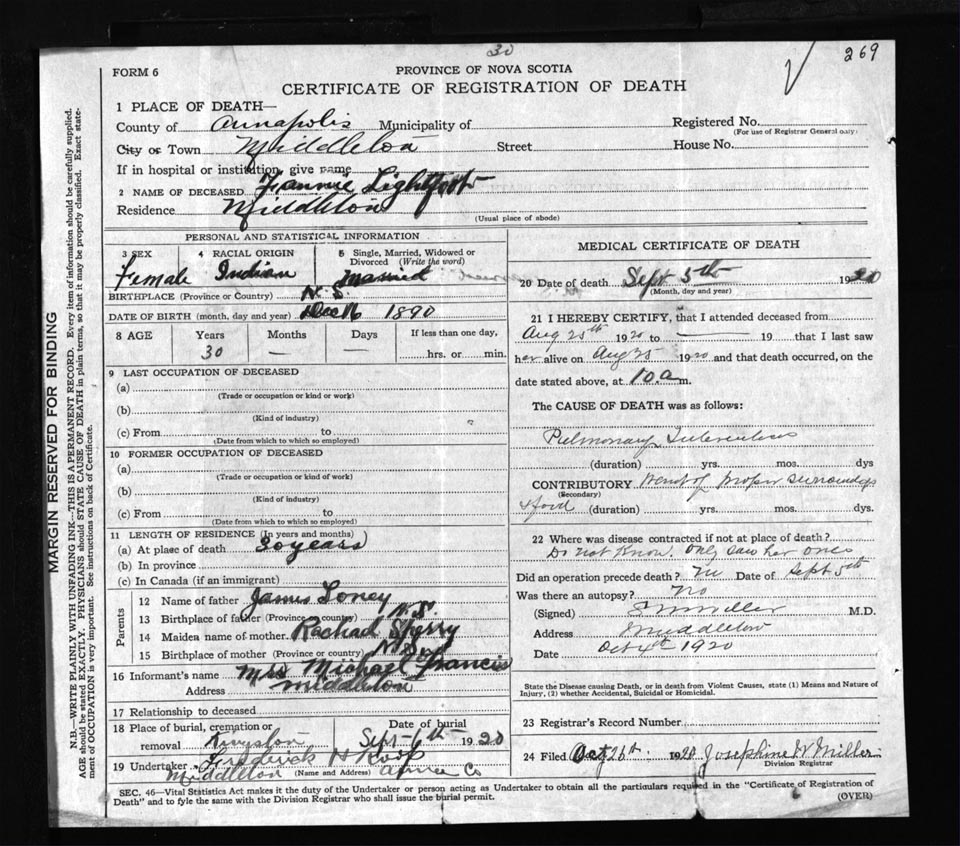 30
269
FORM 6
PROVINCE OF NOVA SCOTIA
CERTIFICATE OF REGISTRATION OF DEATH
1 PLACE OF DEATH—
County of Annapolis Municipality of
Registered No.
(For use of Registrar General only)
City or Town Middleton Street
House No.
If in hospital or institution, give name
2 NAME OF DECEASED Fannie Lightfoot
Residence Middleton
(Usual place of abode)
PERSONAL AND STATISTICAL INFORMATION
3 SEX Female
4 RACIAL ORIGIN Indian
5 Single, Married, Widowed or Divorced (Write the word) Married
BIRTHPLACE (Province or Country) N. S.
DATE OF BIRTH (month, day and year) Dec 16 1890
8 AGE Years 30 Months — Days — If less than one day, hrs. or min.
9 LAST OCCUPATION OF DECEASED
(a)
(Trade or occupation or kind or work)
(b)
(Kind of industry)
(c) From to
(Date from which to which so employed)
10 FORMER OCCUPATION OF DECEASED
(a)
(Trade or occupation or kind of work)
(b)
(Kind of industry)
(c) From to
(Date from which to which so employed)
11 LENGTH OF RESIDENCE (In years and months)
(a) At place of death 30 years
(b) In province
(c) In Canada (if an immigrant)
Parents
12 Name of father James Toney
13 Birthplace of father (Province or country) N. S.
14 Maiden name of mother Rachael
15 Birthplace of mother (Province or country) N. S.
16 Informant's name Mrs Michael Francis
Address Middleton
17 Relationship to deceased
18 Place of burial, cremation or removal Kingston
Date of burial Sept 6th 1920
19 Undertaker Frederick H Roop
Middleton (Name and Address) Anna Co
MEDICAL CERTIFICATE OF DEATH
20 Date of death Sept 5th 1920
(Month, day and year)
21 I HEREBY CERTIFY, that I attended deceased from
Aug 25th 1920 to — 19 that I last saw
her alive on Aug 25 1920 and that death occurred, on the
date stated above, at 10 a m.
The CAUSE OF DEATH was as follows:
Pulmonary Tuberculosis
(duration) yrs. mos. dys
CONTRIBUTORY Want of proper surroundgs
(Secondary)
& food (duration) yrs. mos. dys.
22 Where was disease contracted if not at place of death?
Do not Know. Only saw her once
Did an operation precede death? No Date of Sept 5th
Was there an autopsy? No
(Signed) Miller M.D.
Address Middleton
Date Oct 4th 1920
State the Disease causing Death, or in death from Violent Causes, state (1) Means and Nature of Injury, (2) whether Accidental, Suicidal or Homicidal.
23 Registrar's Record Number
24 Filed Oct 26th 1920 Josephine W Miller
Division Registrar
SEC. 46—Vital Statistics Act makes it the duty of the Undertaker or person acting as Undertaker to obtain all the particulars required in the "Certificate of Registration of
Death" and to fyle the same with the Division Registrar who shall issue the burial permit.
(OVER)
MARGIN RESERVED FOR BINDING
N.B.—WRITE PLAINLY WITH UNFADING INK—THIS IS A PERMANENT RECORD. Every item of information should be carefully supplied.
AGE should be stated EXACTLY. PHYSICIANS should STATE CAUSE OF DEATH in plain terms, so that it may be properly classified. Exact statement
of OCCUPATION is very important. See instructions on back of Certificate.